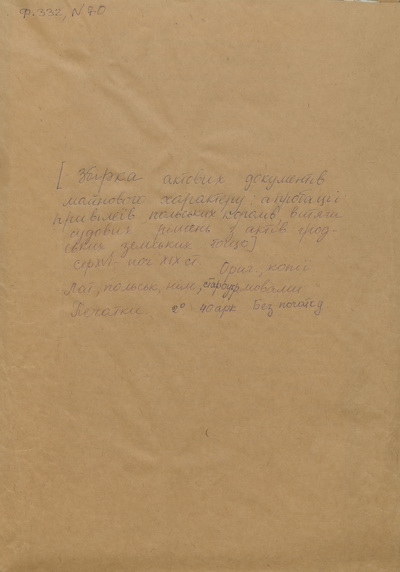 Ф. 332, N 70
[ Збірка актових документів
майнового характеру апробації
привілеїв польських королів, витяги
судових рішень з актів грод-
ських земських тощо ]
сер XVI - поч XIX ст
Ориг., копії
Лат, польськ, нім, староукр мовами
Печатки. 2° 40 арк Без початку